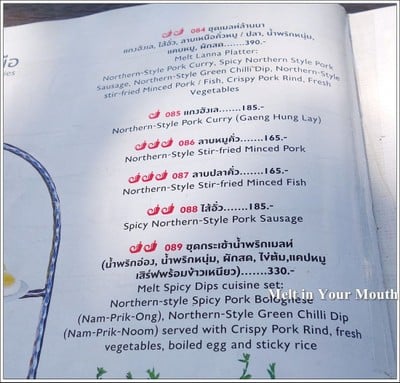 084 ชุดเมลห์ล้านนา
แกงฮังเล, ไส้อั่ว, ลาบเหนือคั่วหมู / ปลา, น้ำพริกหนุ่ม,
แคบหมู, ผักสด.......390.-
Melt Lanna Platter:
Northern-Style Pork Curry, Spicy Northern Style Pork
Sausage, Northern-Style Green Chilli Dip, Northern-Style
stir-fried Minced Pork / Fish, Crispy Pork Rind, Fresh
Vegetables
085 แกงฮังเล.......185.-
Northern-Style Pork Curry (Gaeng Hung Lay)
086 ลาบหมูคั่ว......165.-
Northern-Style Stir-fried Minced Pork
087 ลาบปลาคั่ว......165.-
Northern-Style Stir-fried Minced Fish
088 ไส้อั่ว......185.-
Spicy Northern-Style Pork Sausage
089 ชุดกระเช้าน้ำพริกเมลห์
(น้ำพริกอ่อง, น้ำพริกหนุ่ม, ผักสด, ไข่ต้ม,แคปหมู
เสิร์ฟพร้อมข้าวเหนียว).......330.-
Melt Spicy Dips cuisine set:
Northern-style Spicy Pork Bolognese
(Nam-Prik-Ong), Northern-Style Green Chilli Dip
(Nam-Prik-Noom) served with Crispy Pork Rind, fresh
vegetables, boiled egg and sticky rice
Melt in Your Mouth